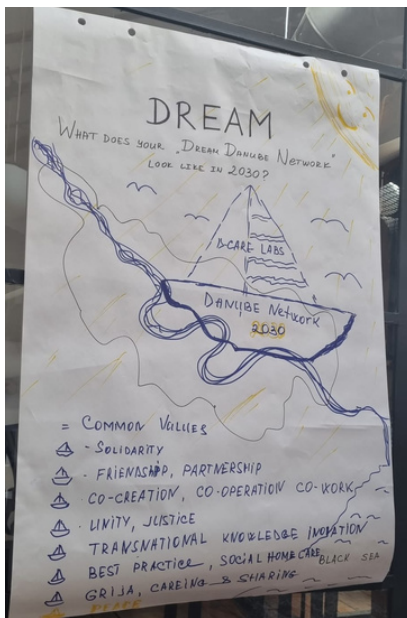 DREAM
WHAT DOES YOUR „DREAM DANUBE NETWORK"
LOOK LIKE IN 2030?
D-CARE LABS
DANUBE NETWORK
2030
= COMMON VALUES
- SOLIDARITY
- FRIENDSHIP, PARTNERSHIP
CO-CREATION, CO-OPERATION CO-WORK
- UNITY, JUSTICE
TRANSNATIONAL KNOWLEDGE INOVATION
BEST PRACTICE, SOCIAL HOME CARE,
BLACK SEA
GRIJA, CAREING & SHARING
PEACE